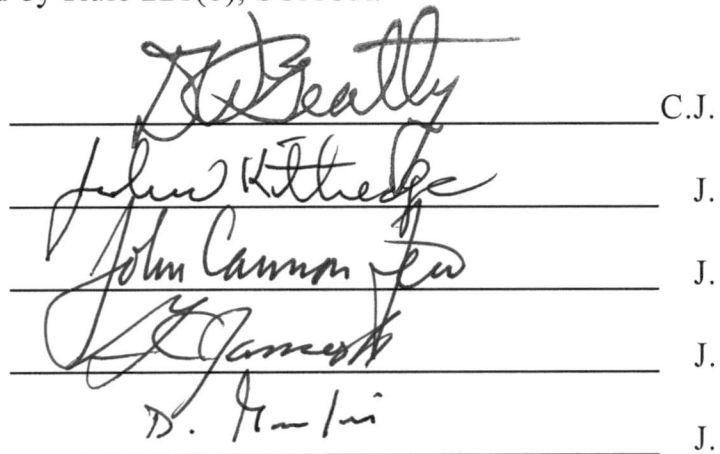 by Rule
DWBeatty C.J.
John W Kittredge J.
John Cannon Few J.
G James J.
D. J.